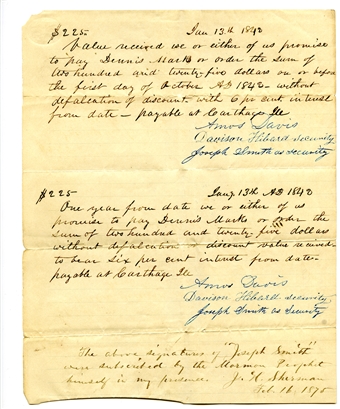 $225 Jan 13th 1840
Value received we or either of us promise
to pay Dennis Marks or order the sum of
two hundred and twenty-five dollars on or before
the first day of October AD 1840 without
defalcation or discount with 6 pr cent interest
from date - payable at Carthage Ill
Amos Davis
Davison Hibard security
Joseph Smith as security
$225 Jany 13th AD 1840
One year from date we or either of us
promise to pay Dennis Marks or order the
sum of two hundred and twenty-five dollars
without defalcation or discount value received
to bear six per cent interest from date-
payable at Carthage Ill
Amos Davis
Davison Hibard security
Joseph Smith as Security
The above signatures of "Joseph Smith"
were subscribed by the Mormon Prophet
himself in my presence. Sherman
Feb. 16, 1875